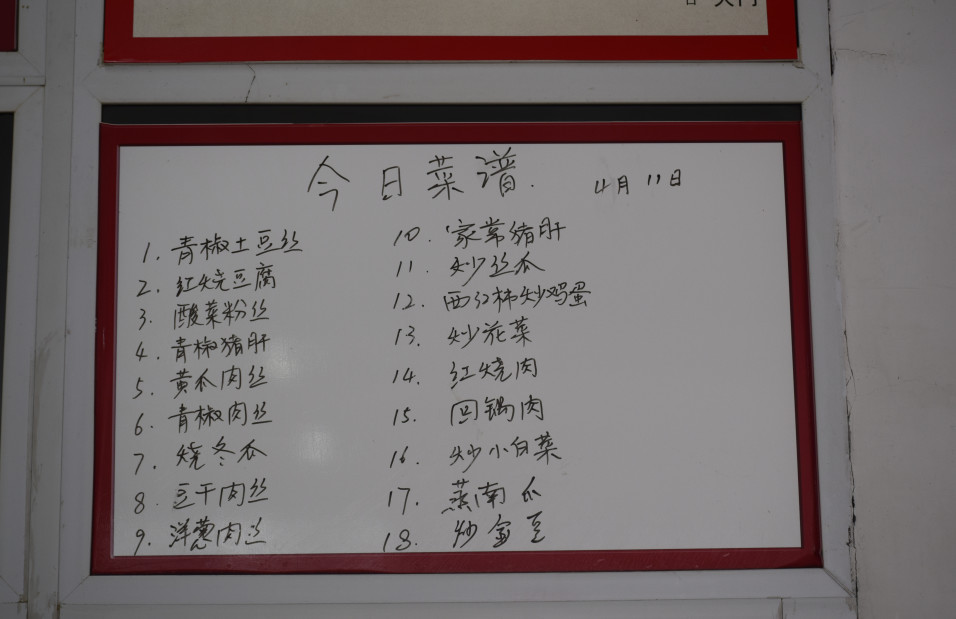 今日菜谱. 4月11日
1. 青椒土豆丝
2. 红烧豆腐
3. 酸菜粉丝
4. 青椒猪肝
5. 黄瓜肉丝
6. 青椒肉丝
7. 烧冬瓜
8. 豆干肉丝
9. 洋葱肉丝
10. 家常猪肝
11. 炒丝瓜
12. 西红柿炒鸡蛋
13. 炒花菜
14. 红烧肉
15. 回锅肉
16. 炒小白菜
17. 蒸南瓜
18. 炒金豆